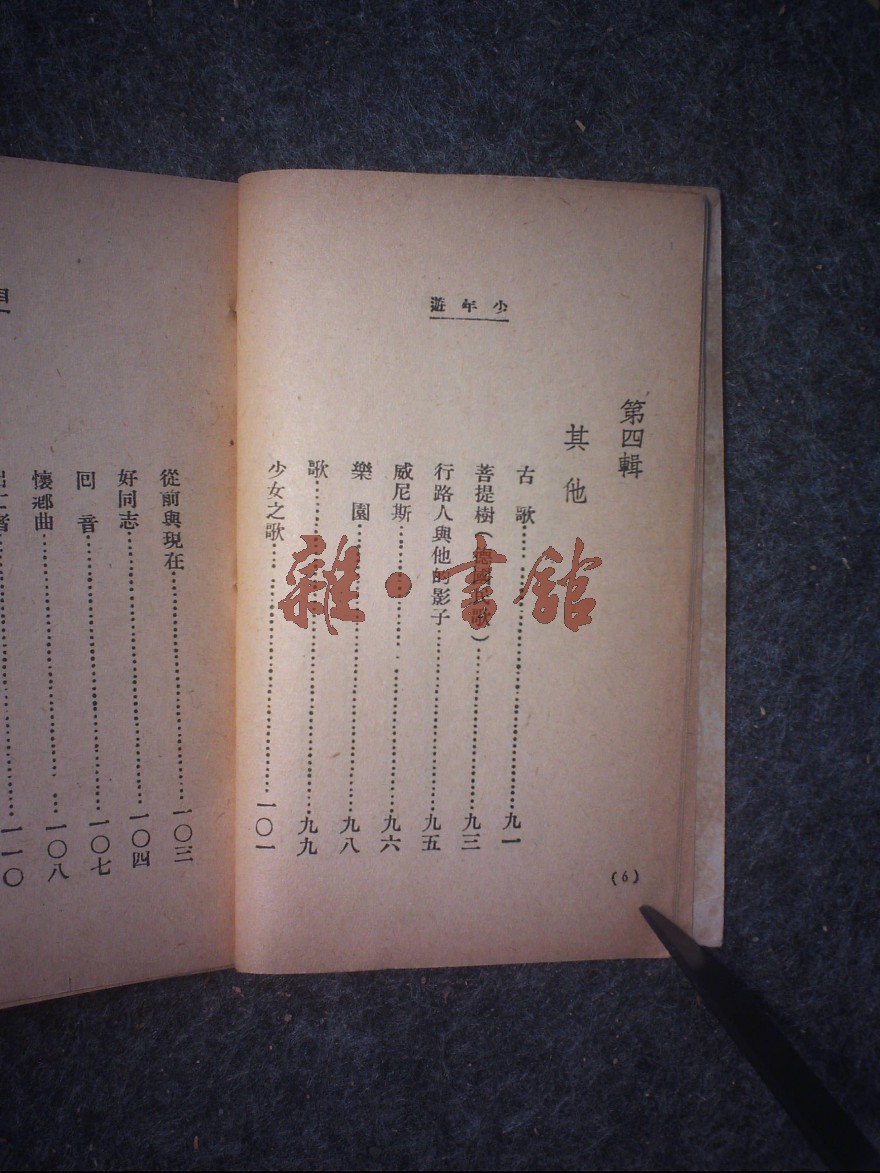 少年遊
第四輯
其他
古歌……九一
菩提樹(德國民歌)……九三
行路人與他的影子……九五
威尼斯……九六
樂園……九八
歌……九九
少女之歌……一〇一
(6)
從前與現在……一〇三
好同志……一〇四
回音……一〇七
懷鄉曲……一〇八
……一一〇
雜·書館